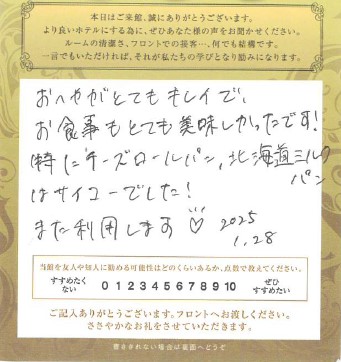 本日はご来館、誠にありがとうございます。
より良いホテルにする為に、ぜひあなた様の声をお聞かせください。
ルームの清潔さ、フロントでの接客…、何でも結構です。
一言でもいただければ、それが私たちの学びとなり励みになります。
おへやがとてもキレイで、
お食事もとても美味しかったです!
特にチーズロールパン、北海道ミルク
パン
はサイコーでした!
また利用します♡ 2025
1.28
当館を友人や知人に勧める可能性はどのくらいあるか、点数で教えてください。
すすめたく
ない
0 1 2 3 4 5 6 7 8 9 10
ぜひ
すすめたい
ご記入ありがとうございます。フロントへお渡しください。
ささやかなお礼をさせていただきます。
書ききれない場合は裏面へどうぞ